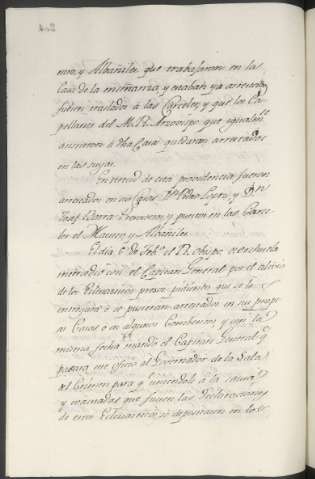 mro, y Albañiles que trabajaron en la
Casa de la enseñanza y estaban ya arrestados
fuesen traslados à las Carceles, y que los Ca-
pellanes del M. R. Arzobispo que igualmte
asistieron à dha Casa quedaran arrestados
en las suyas.
En virtud de esta providencia fueron
arrestados en sus Casas Dn Pedro y Dn
Josef y pusieron en las Carce-
les el Maestro y Albañiles.
El dia 6 de Febo el R. Obispo
con el Capitan General por el alivio
de los Eclesiasticos presos pidiendo que se le
entregasen ò se pusieran arrestados en sus propi-
as Casas ò en algunos Conventos y con la
misma fecha mandò el Capitan General q
pasara un oficio al Governador de la Sala
del Crimen para q uniendole à la causa
y tomadas que fuesen las Declaraciones
de estos Eclesiasticos se depositaran en los